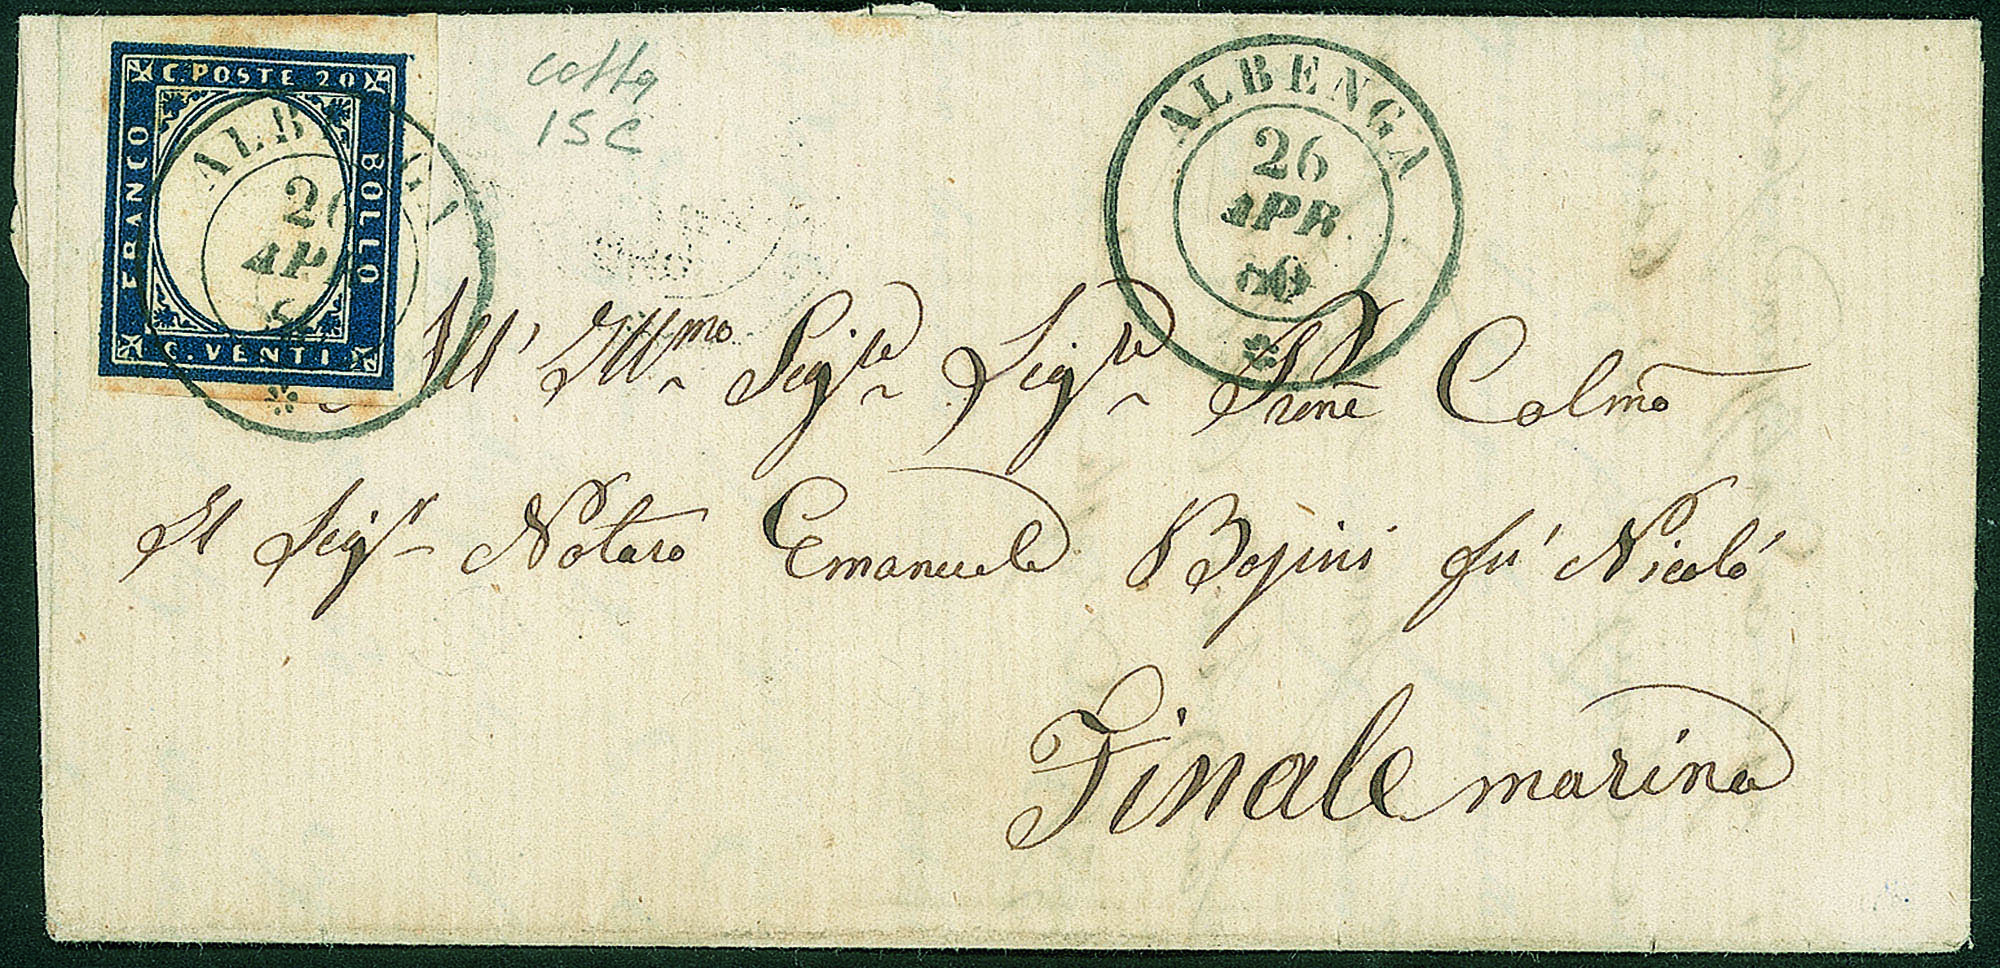 C. POSTE 20
FRANCO
BOLLO
C. VENTI
ALBENGA
26
AP
cotta
15C
ALBENGA
26
APR
60
All' Ill.mo Sig.re Sig.re Colmo
Il Sig.r Notaro Emanuele fu' Nicoló
Finale marina